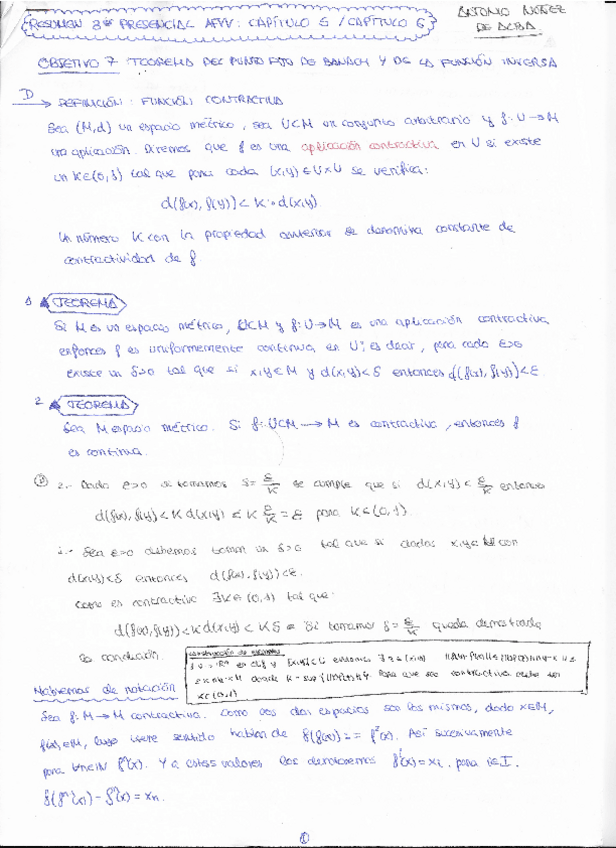 RESUMEN 3ª PRESENCIAL AFVV: CAPÍTULO 5 / CAPÍTULO 6
ANTONIO NÚÑEZ
DE ALBA
OBJETIVO 7 TEOREMA DEL PUNTO FIJO DE BANACH Y DE LA FUNCIÓN INVERSA
D → DEFINICIÓN: FUNCIÓN CONTRACTIVA
Sea (M,d) un espacio métrico, sea U⊂M un conjunto arbitrario y f: U→M
una aplicación. Diremos que f es una aplicación contractiva en U si existe
un K∈(0,1) tal que para cada (x,y)∈U×U se verifica:
d(f(x), f(y)) < K · d(x,y).
Un número K con la propiedad anterior se denomina constante de
contractividad de f.
1 TEOREMA
Si M es un espacio métrico, U⊂M y f: U→M es una aplicación contractiva
entonces f es uniformemente continua en U; es decir, para cada ε>0
existe un δ>0 tal que si x,y∈M y d(x,y)<δ entonces d(f(x), f(y))<ε.
2 TEOREMA
Sea M espacio métrico. Si f: U⊂M → M es contractiva, entonces f
es continua.
D 2.- Dado ε>0 si tomamos δ=ε/K se cumple que si d(x,y)<ε/K entonces
d(f(x), f(y)) < K d(x,y) ≤ K ε/K = ε para K∈(0,1).
1.- Sea ε>0 debemos tomar un δ>0 tal que si dados x,y∈ con
d(x,y)<δ entonces d(f(x), f(y))<ε.
Como es contractiva ∃K∈(0,1) tal que:
d(f(x), f(y)) < K d(x,y) < Kδ = Si tomamos δ=ε/K queda demostrada
la conclusión.
Para que sea contractiva debe ser
K∈(0,1)
Hablemos de notación
Sea f: M→M contractiva. Como los dos espacios son los mismos, dado x∈M,
f(x)∈M, luego tiene sentido hablar de f(f(x)) = f²(x). Así sucesivamente
para fⁿ(x). Y a estos valores los denotaremos fⁱ(x)=xᵢ para i∈I.
①